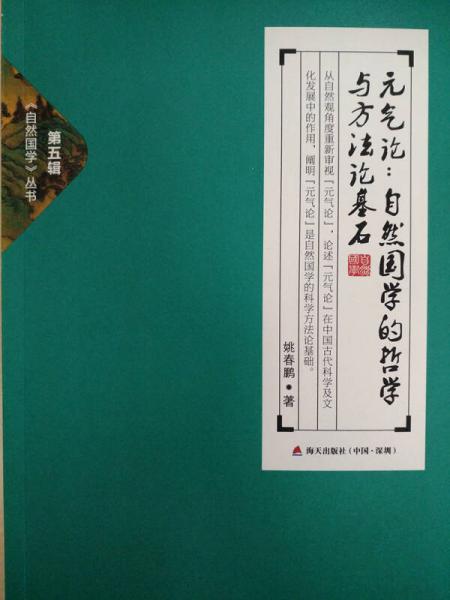 元气论：自然国学的哲学
与方法论基石
自然國學
从自然观角度重新审视『元气论』，论述『元气论』在中国古代科学及文
化发展中的作用，阐明『元气论』是自然国学的科学方法论基础。
姚春鹏·著
海天出版社（中国·深圳）
第五辑
《自然国学》丛书